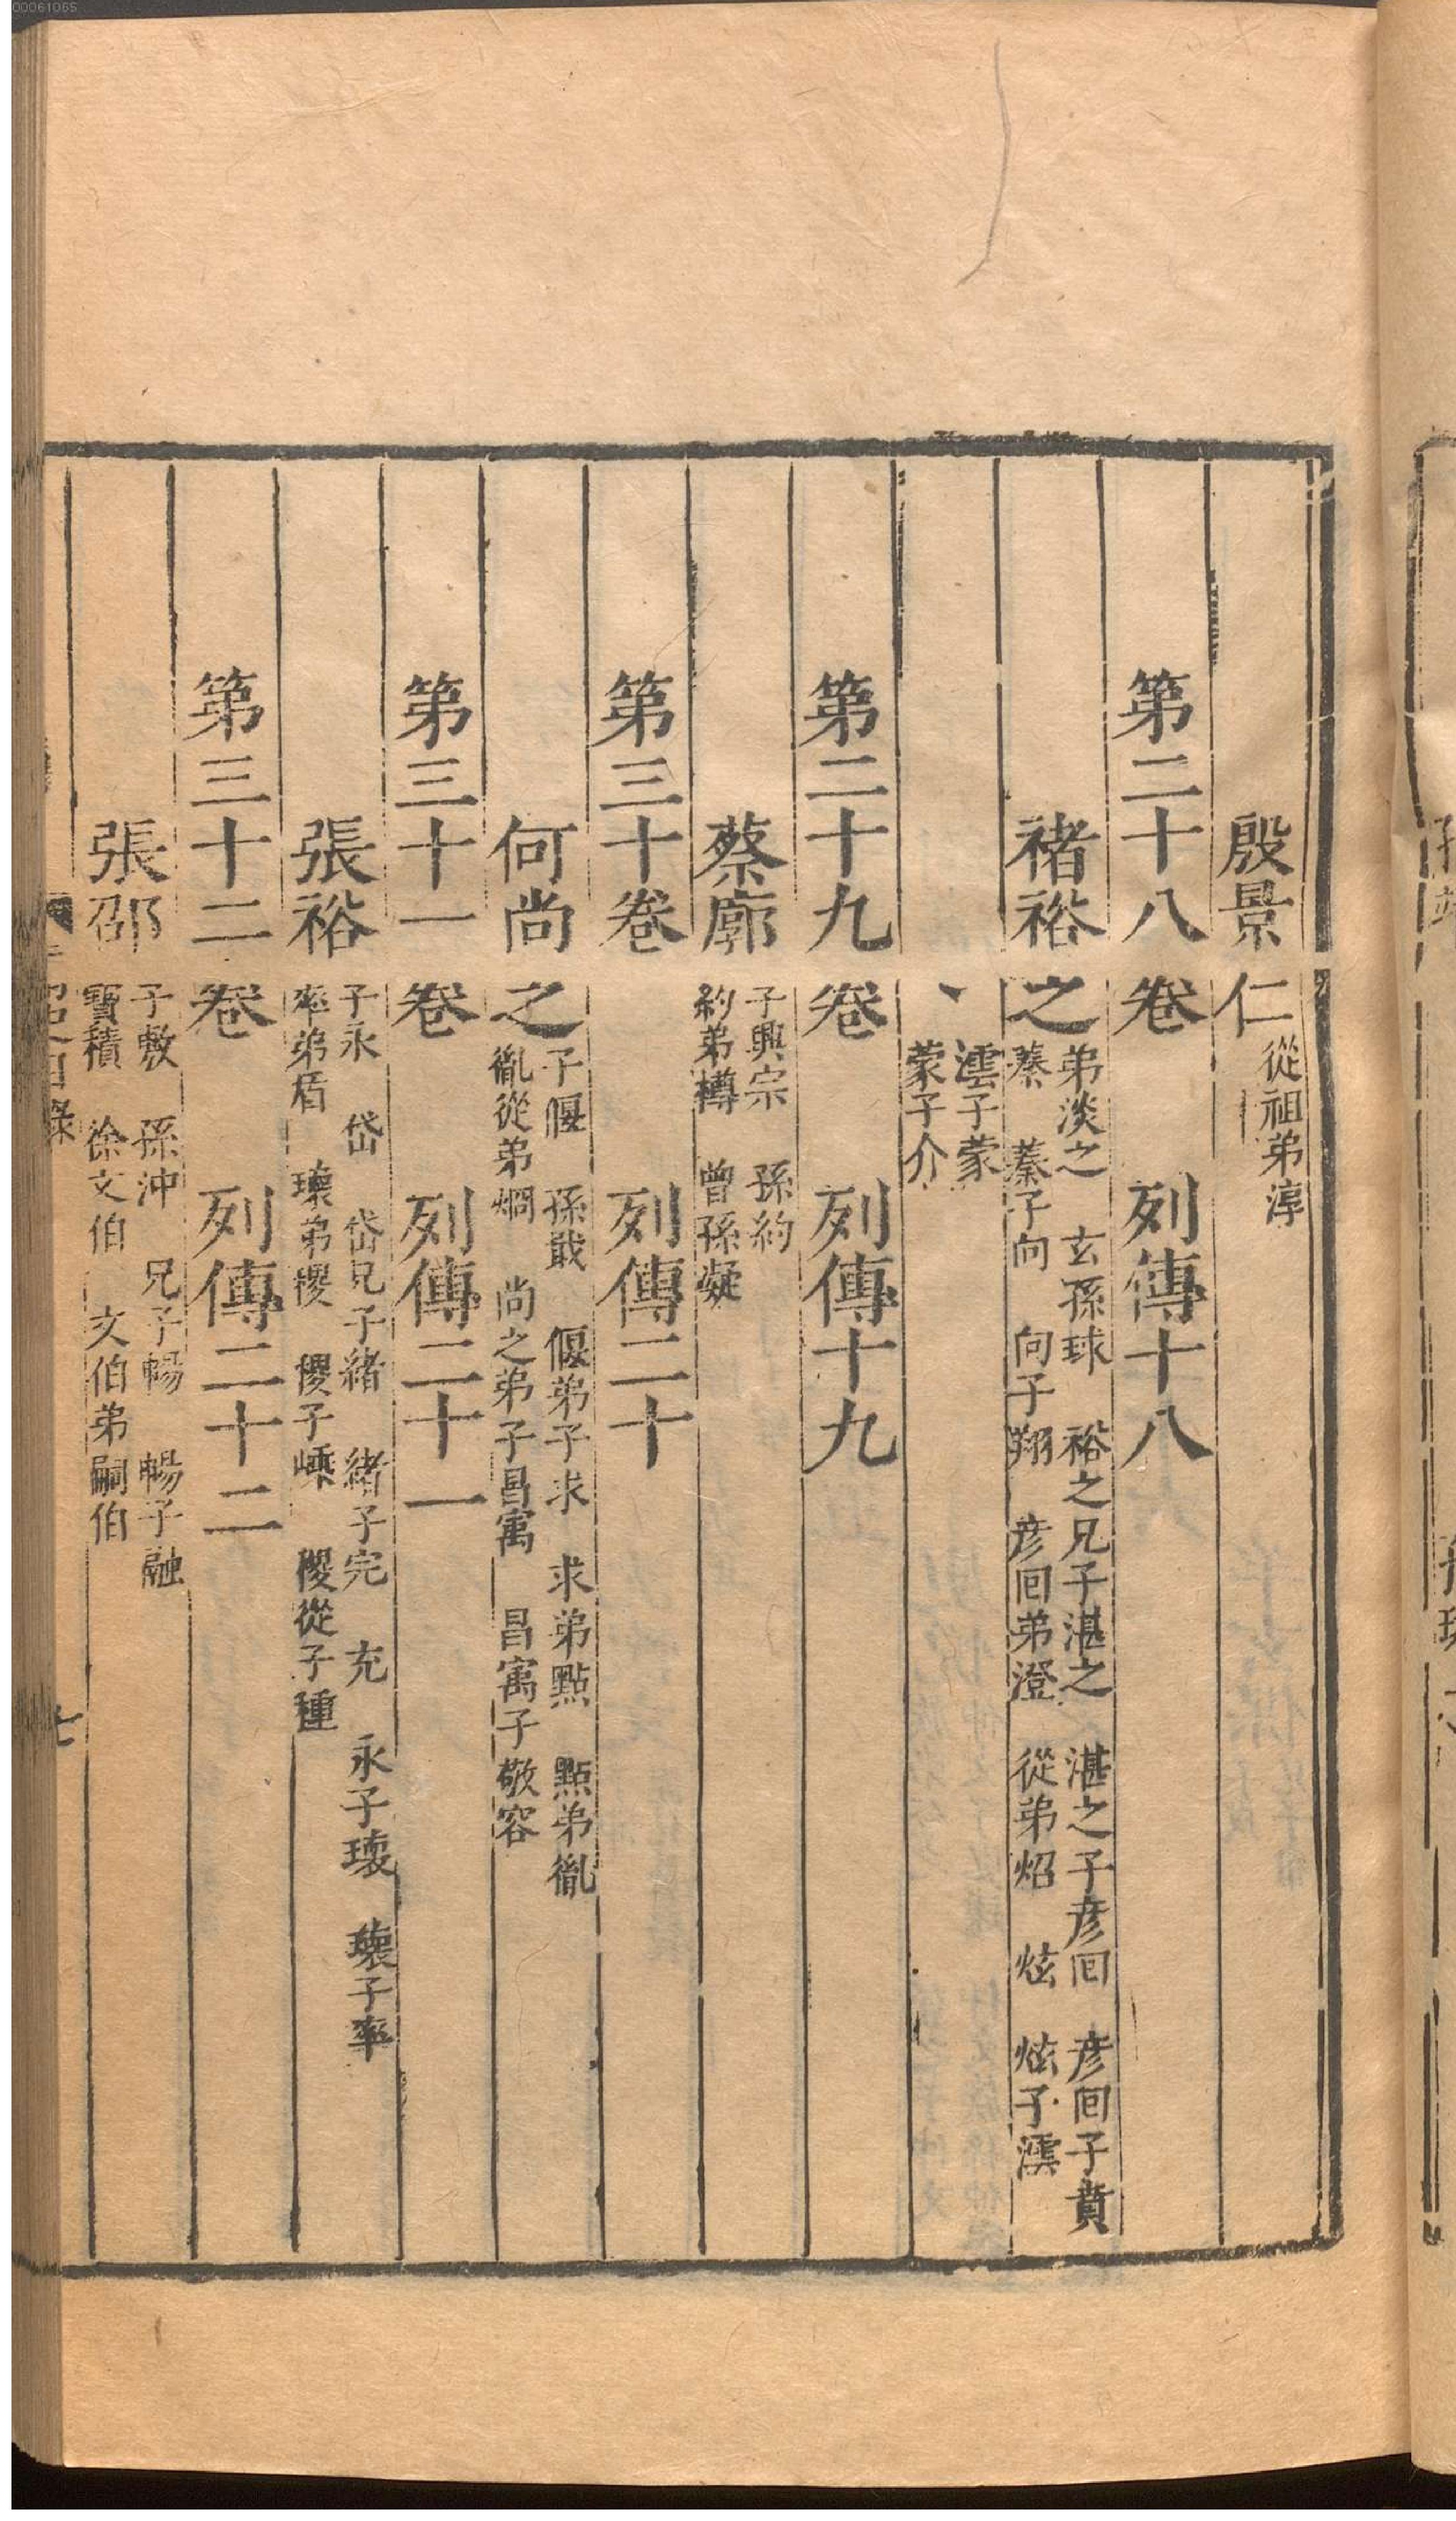 00061065
殷景仁 從祖弟淳
第二十八卷 列傳十八
禇裕之 弟淡之 玄孫球 裕之兄子湛之 湛之子彦囘 彦囘子賁
蓁 蓁子向 向子翔 彦囘弟澄 從弟炤 炫 炫子澐
澐子蒙
蒙子介
第二十九卷 列傳十九
蔡廓 子興宗 孫約
約弟樽 曾孫凝
第三十卷 列傳二十
何尚之 子偃 孫戢 偃弟子求 求弟點 點弟胤
胤從弟烱 尚之弟子昌㝢 昌㝢子敬容
第三十一卷 列傳二十一
張裕 子永 岱 岱兄子緒 緒子完 充 永子瓌 瓌子率
率弟盾 瓌弟稷 稷子嵊 稷從子種
第三十二卷 列傳二十二
張邵 子敷 孫沖 兄子暢 暢子融
寶積 徐文伯 文伯弟嗣伯
目錄
七